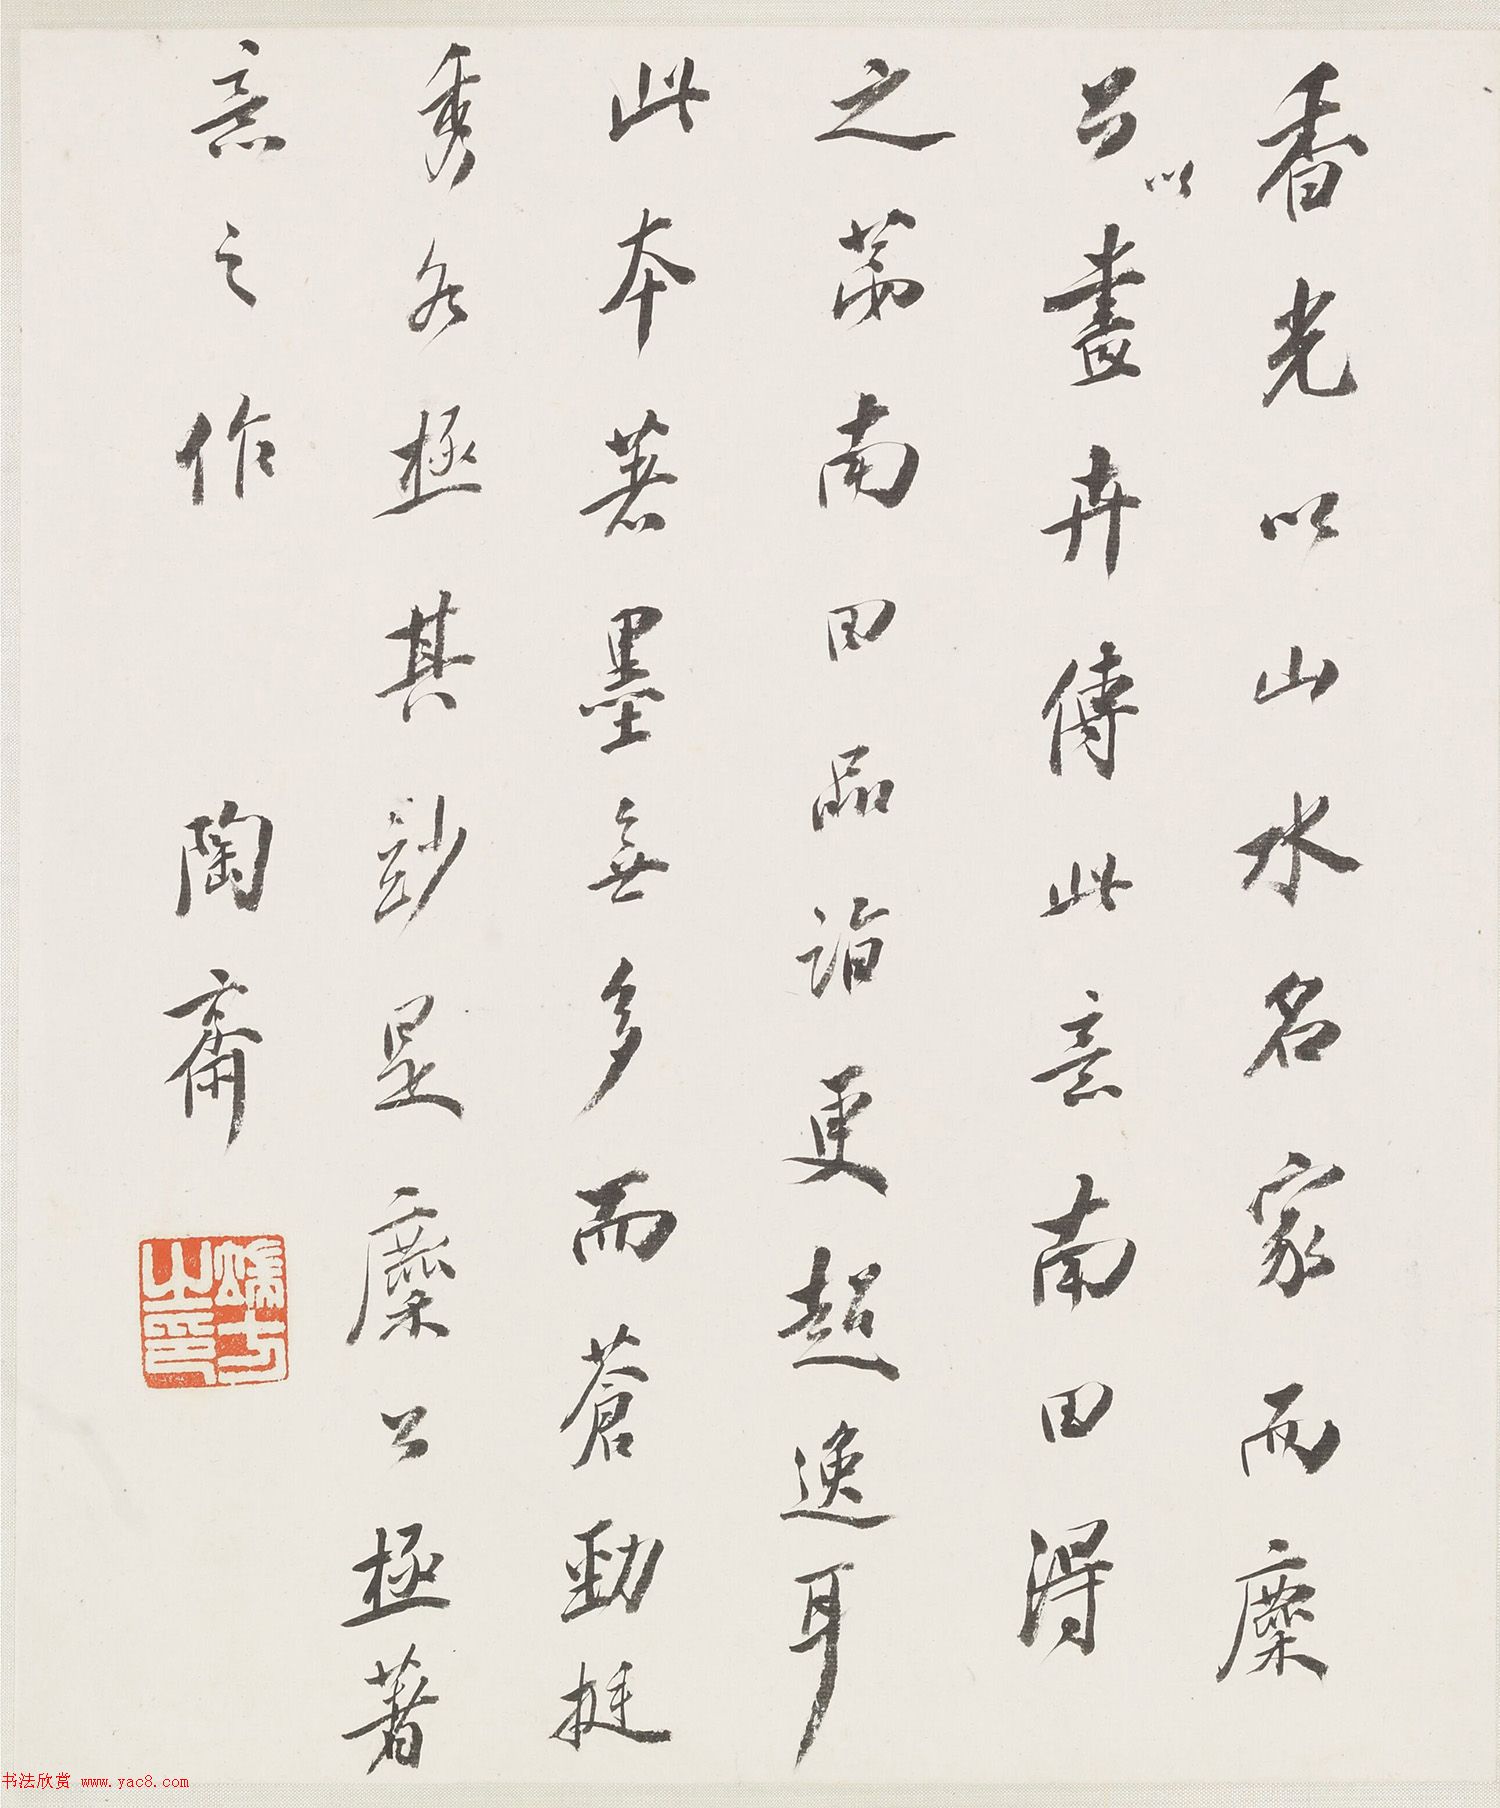 香光以山水名家而麋
公以畫卉傳此意南田得
之苐南田品詣更超逸耳
此本著墨無多而蒼勁挺
秀各極其玅是麋公極著
意之作 陶齋
端方之印
书法欣赏 www.yac8.com